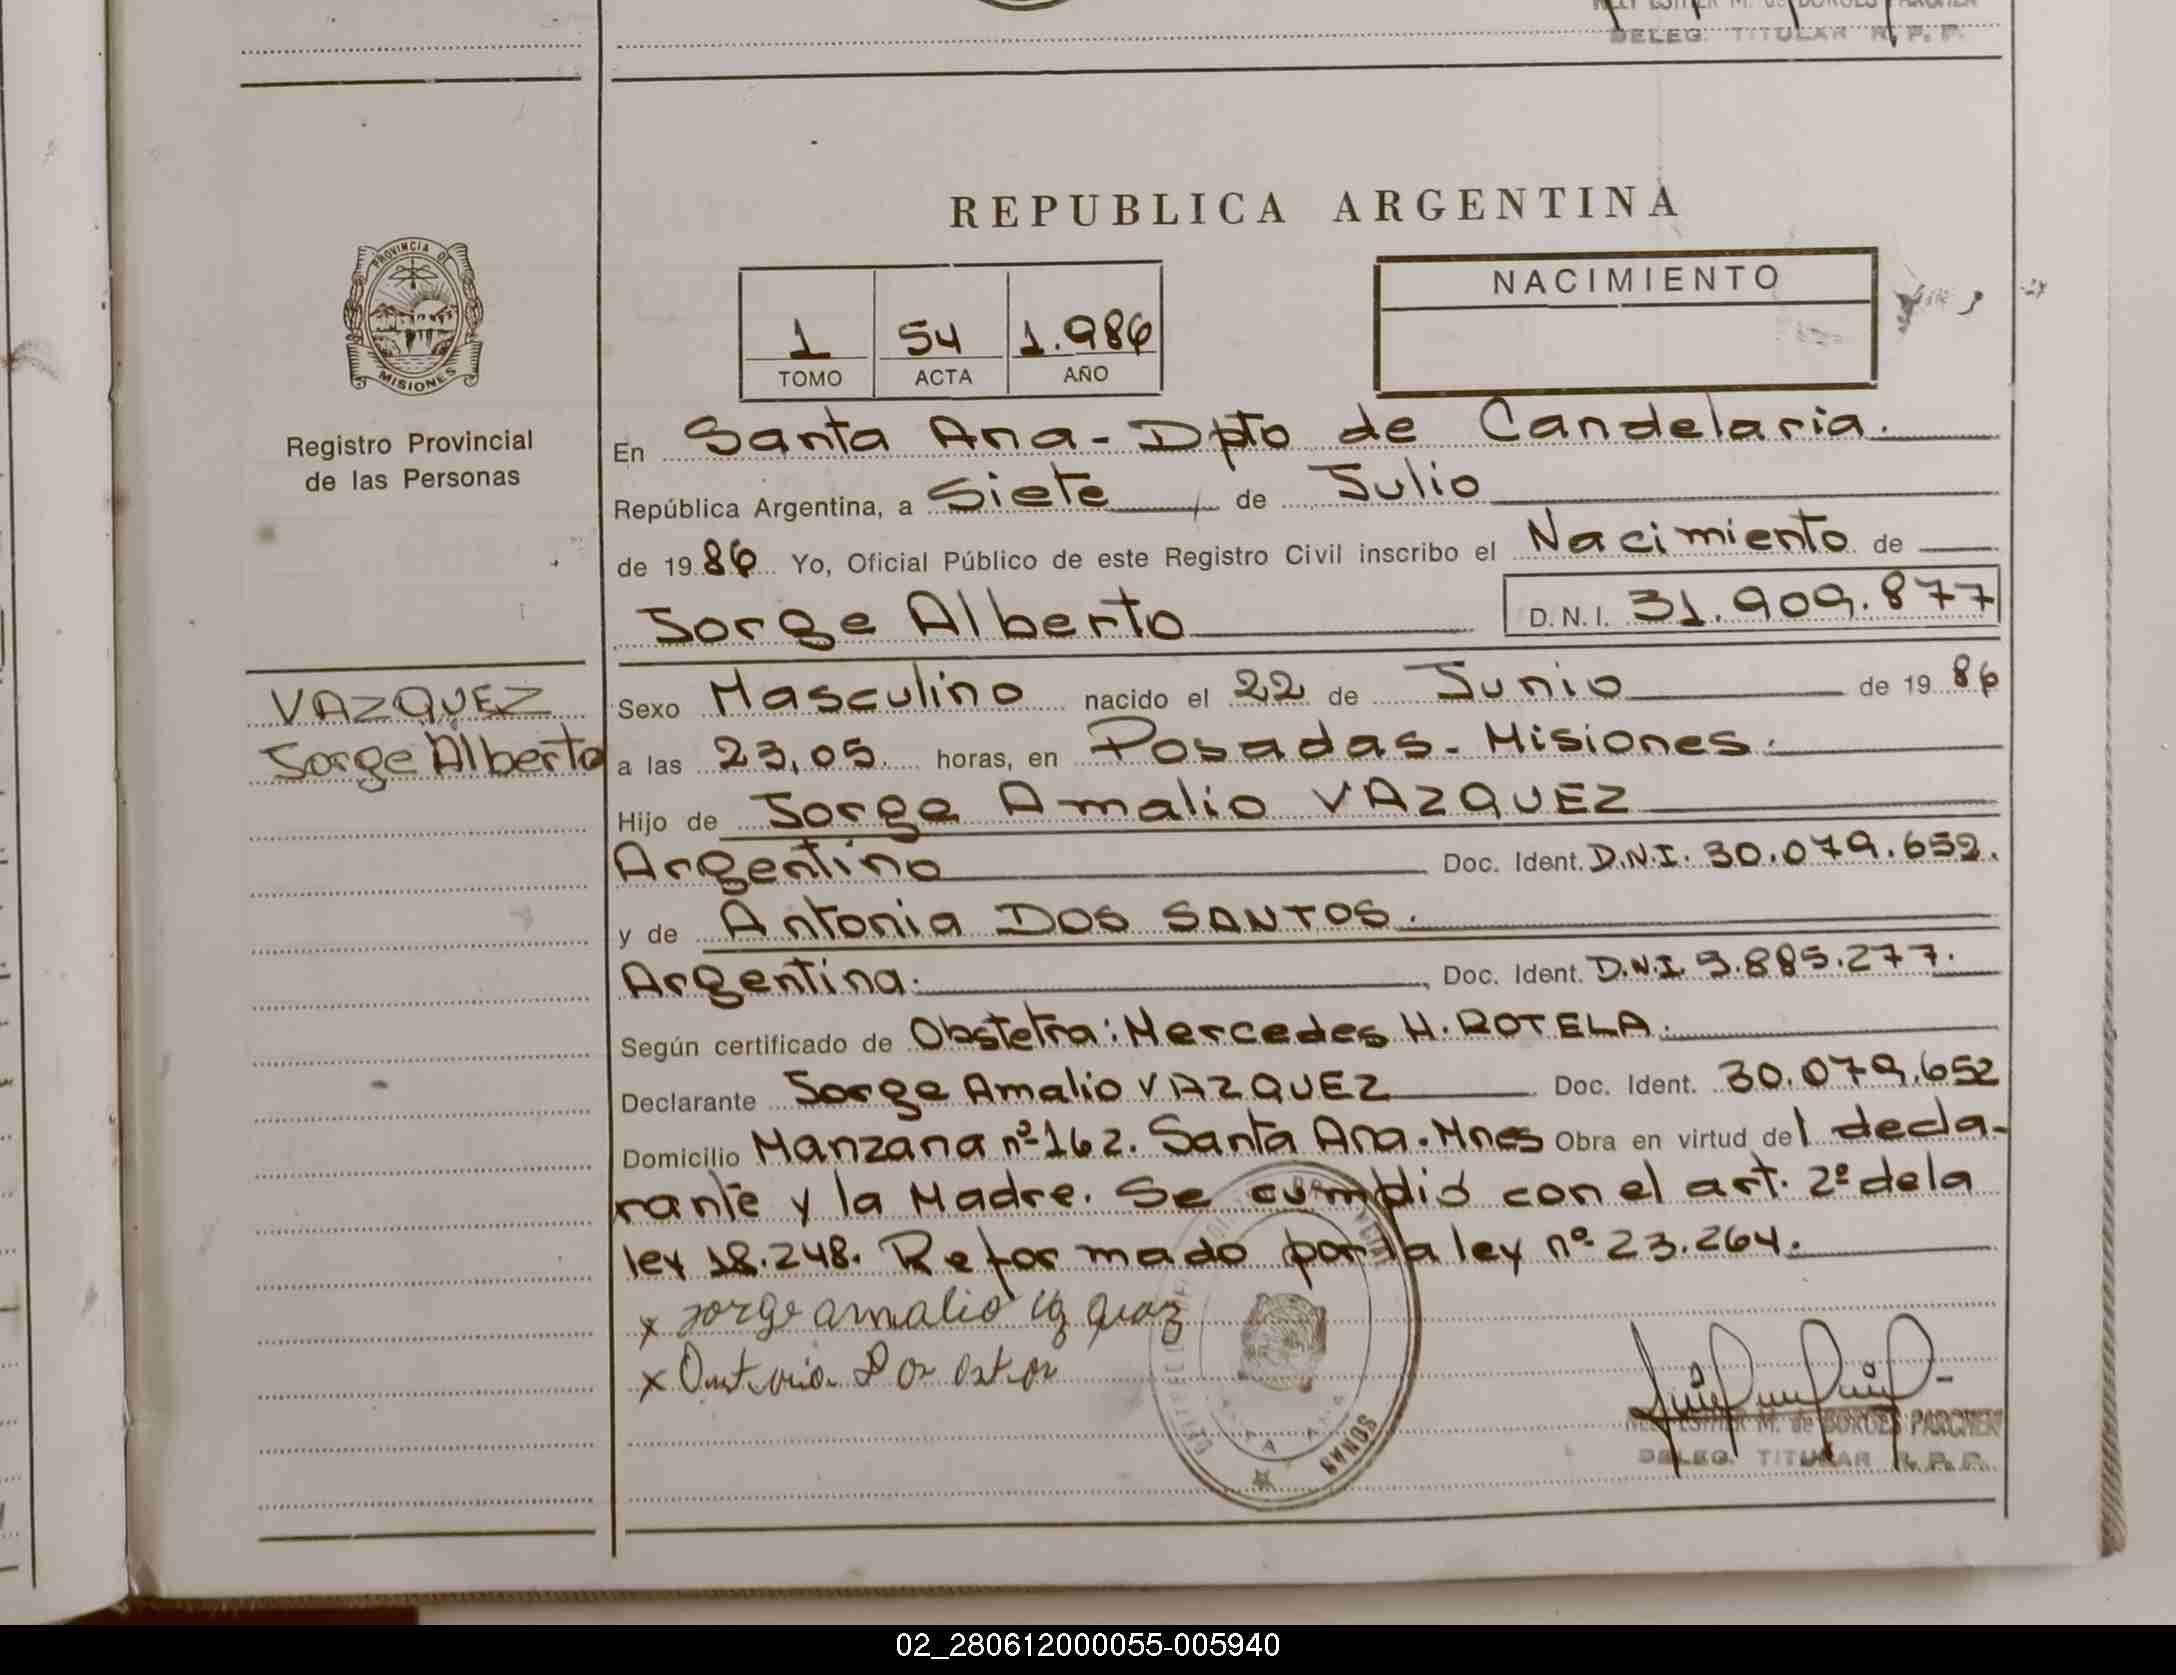 DELEG. TITULAR R. P. P.
REPUBLICA ARGENTINA
PROVINCIA DE
MISIONES
NACIMIENTO
1 54 1.986
TOMO ACTA AÑO
Registro Provincial
de las Personas
En Santa Ana - Dpto de Candelaria.
República Argentina, a Siete de Julio
de 1986 Yo, Oficial Público de este Registro Civil inscribo el Nacimiento de
Jorge Alberto D.N.I. 31.909.877
VAZQUEZ
Jorge Alberto
Sexo Masculino nacido el 22 de Junio de 1986
a las 23,05. horas, en Posadas - Misiones.
Hijo de Jorge Amalio VAZQUEZ
Argentino Doc. Ident. D.N.I. 30.079.652.
y de Antonia DOS SANTOS.
Argentina. , Doc. Ident. D.N.I. 9.885.277.
Según certificado de Obstetra: Mercedes H. ROTELA.
Declarante Jorge Amalio VAZQUEZ Doc. Ident. 30.079.652
Domicilio Manzana nº 162. Santa Ana. Mnes Obra en virtud del decla-
rante y la Madre. Se cumplió con el art. 2º de la
ley 18.248. Reformado por la ley nº 23.264.
x Jorge amalio
x
M. de BORGES PARCHEN
DELEG. TITULAR R. P. P.
SANTA ANA
02_280612000055-005940